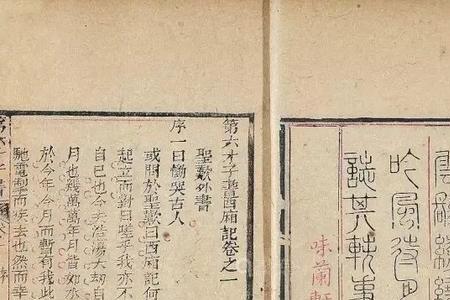 雲
吟風待月
誌其軼事
味蘭軒
第六才子書西廂記卷之一
聖歎外書
序一曰慟哭古人
或問於聖歎曰西廂記何
起立而對曰嗟乎我亦不
自已也今夫浩蕩大劫自
月也幾萬萬年月皆如
於今年今月而暫有我此
馳電掣而疾去也然而幸